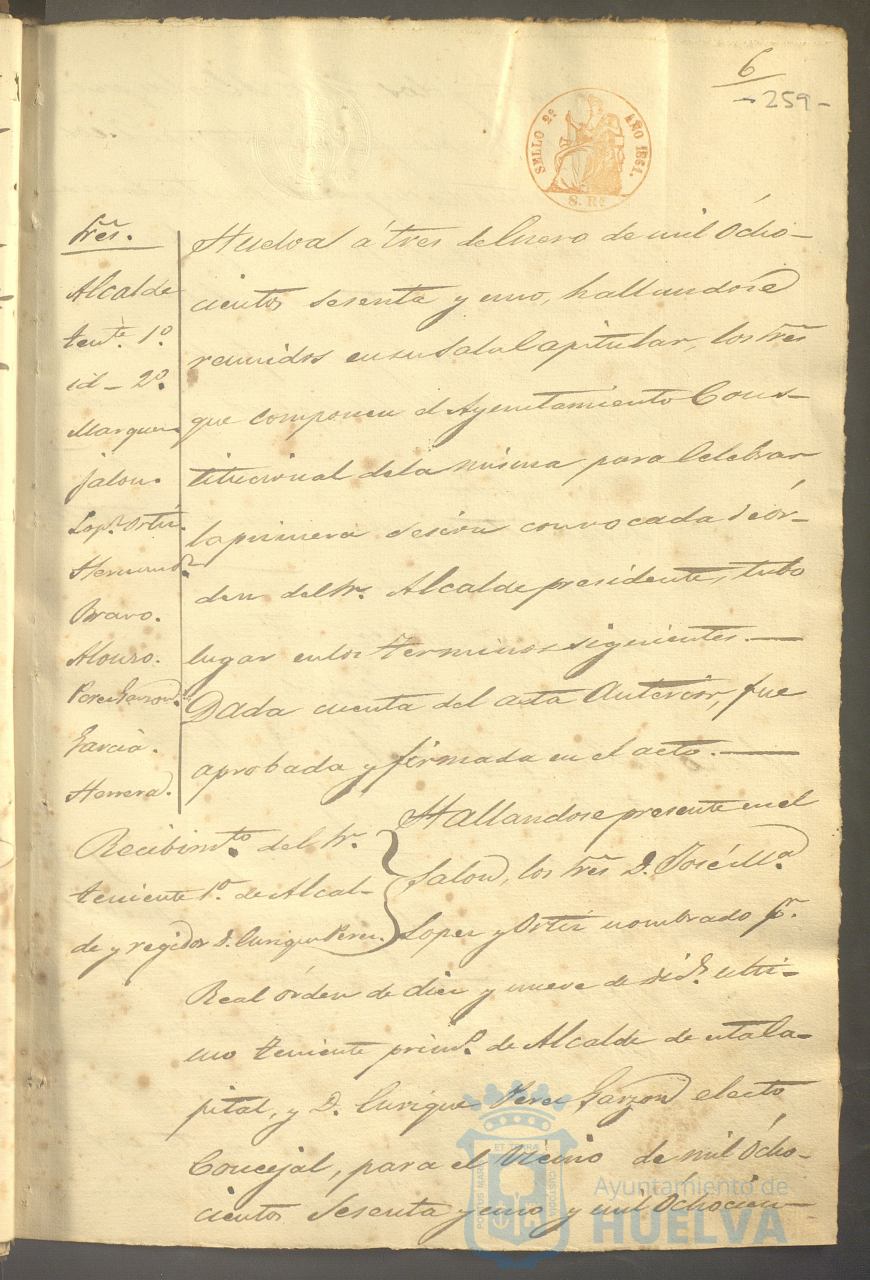 6
- 259 -
SELLO 2º AÑO 1861.
S. Rs
Sres.
Alcalde
tente. 1º.
id - 2º.
Marquez
Jalon.
Lopz. Ortiz.
Hernandz.
Bravo.
Alonso.
Perez Garzon.
Garcia.
Herrera.
Huelva á tres de Enero de mil Ócho-
cientos sesenta y uno, hallandose
reunidos en su Sala Capitular, los Sres
que componen el Ayuntamiento Cons-
titucional de la misma para Celebrar
la primera sesion convocada de ór-
den del Sr. Alcalde presidente, tubo
lugar en los terminos siguientes.—
Dada cuenta del acta Anterior, fue
aprobada y firmada en el acto.—
Recibimto. del Sr.
teniente 1º. de Alcal-
de y regidor D. Enrique Perez.
Hallandose presente en el
Salon, los Sres D. José Mª
Lopez y Ortiz nombrado pr.
Real órden de diez y nueve de Dice. ulti-
mo teniente primo. de Alcalde de esta Ca-
pital, y D. Enrique Perez Garzon electo
Concejal, para el vienio de mil Ócho-
cientos Sesenta y uno y mil Ochocien-
PORTUS MARIS ET TERRAE CUSTODIA
Ayuntamiento de
HUELVA